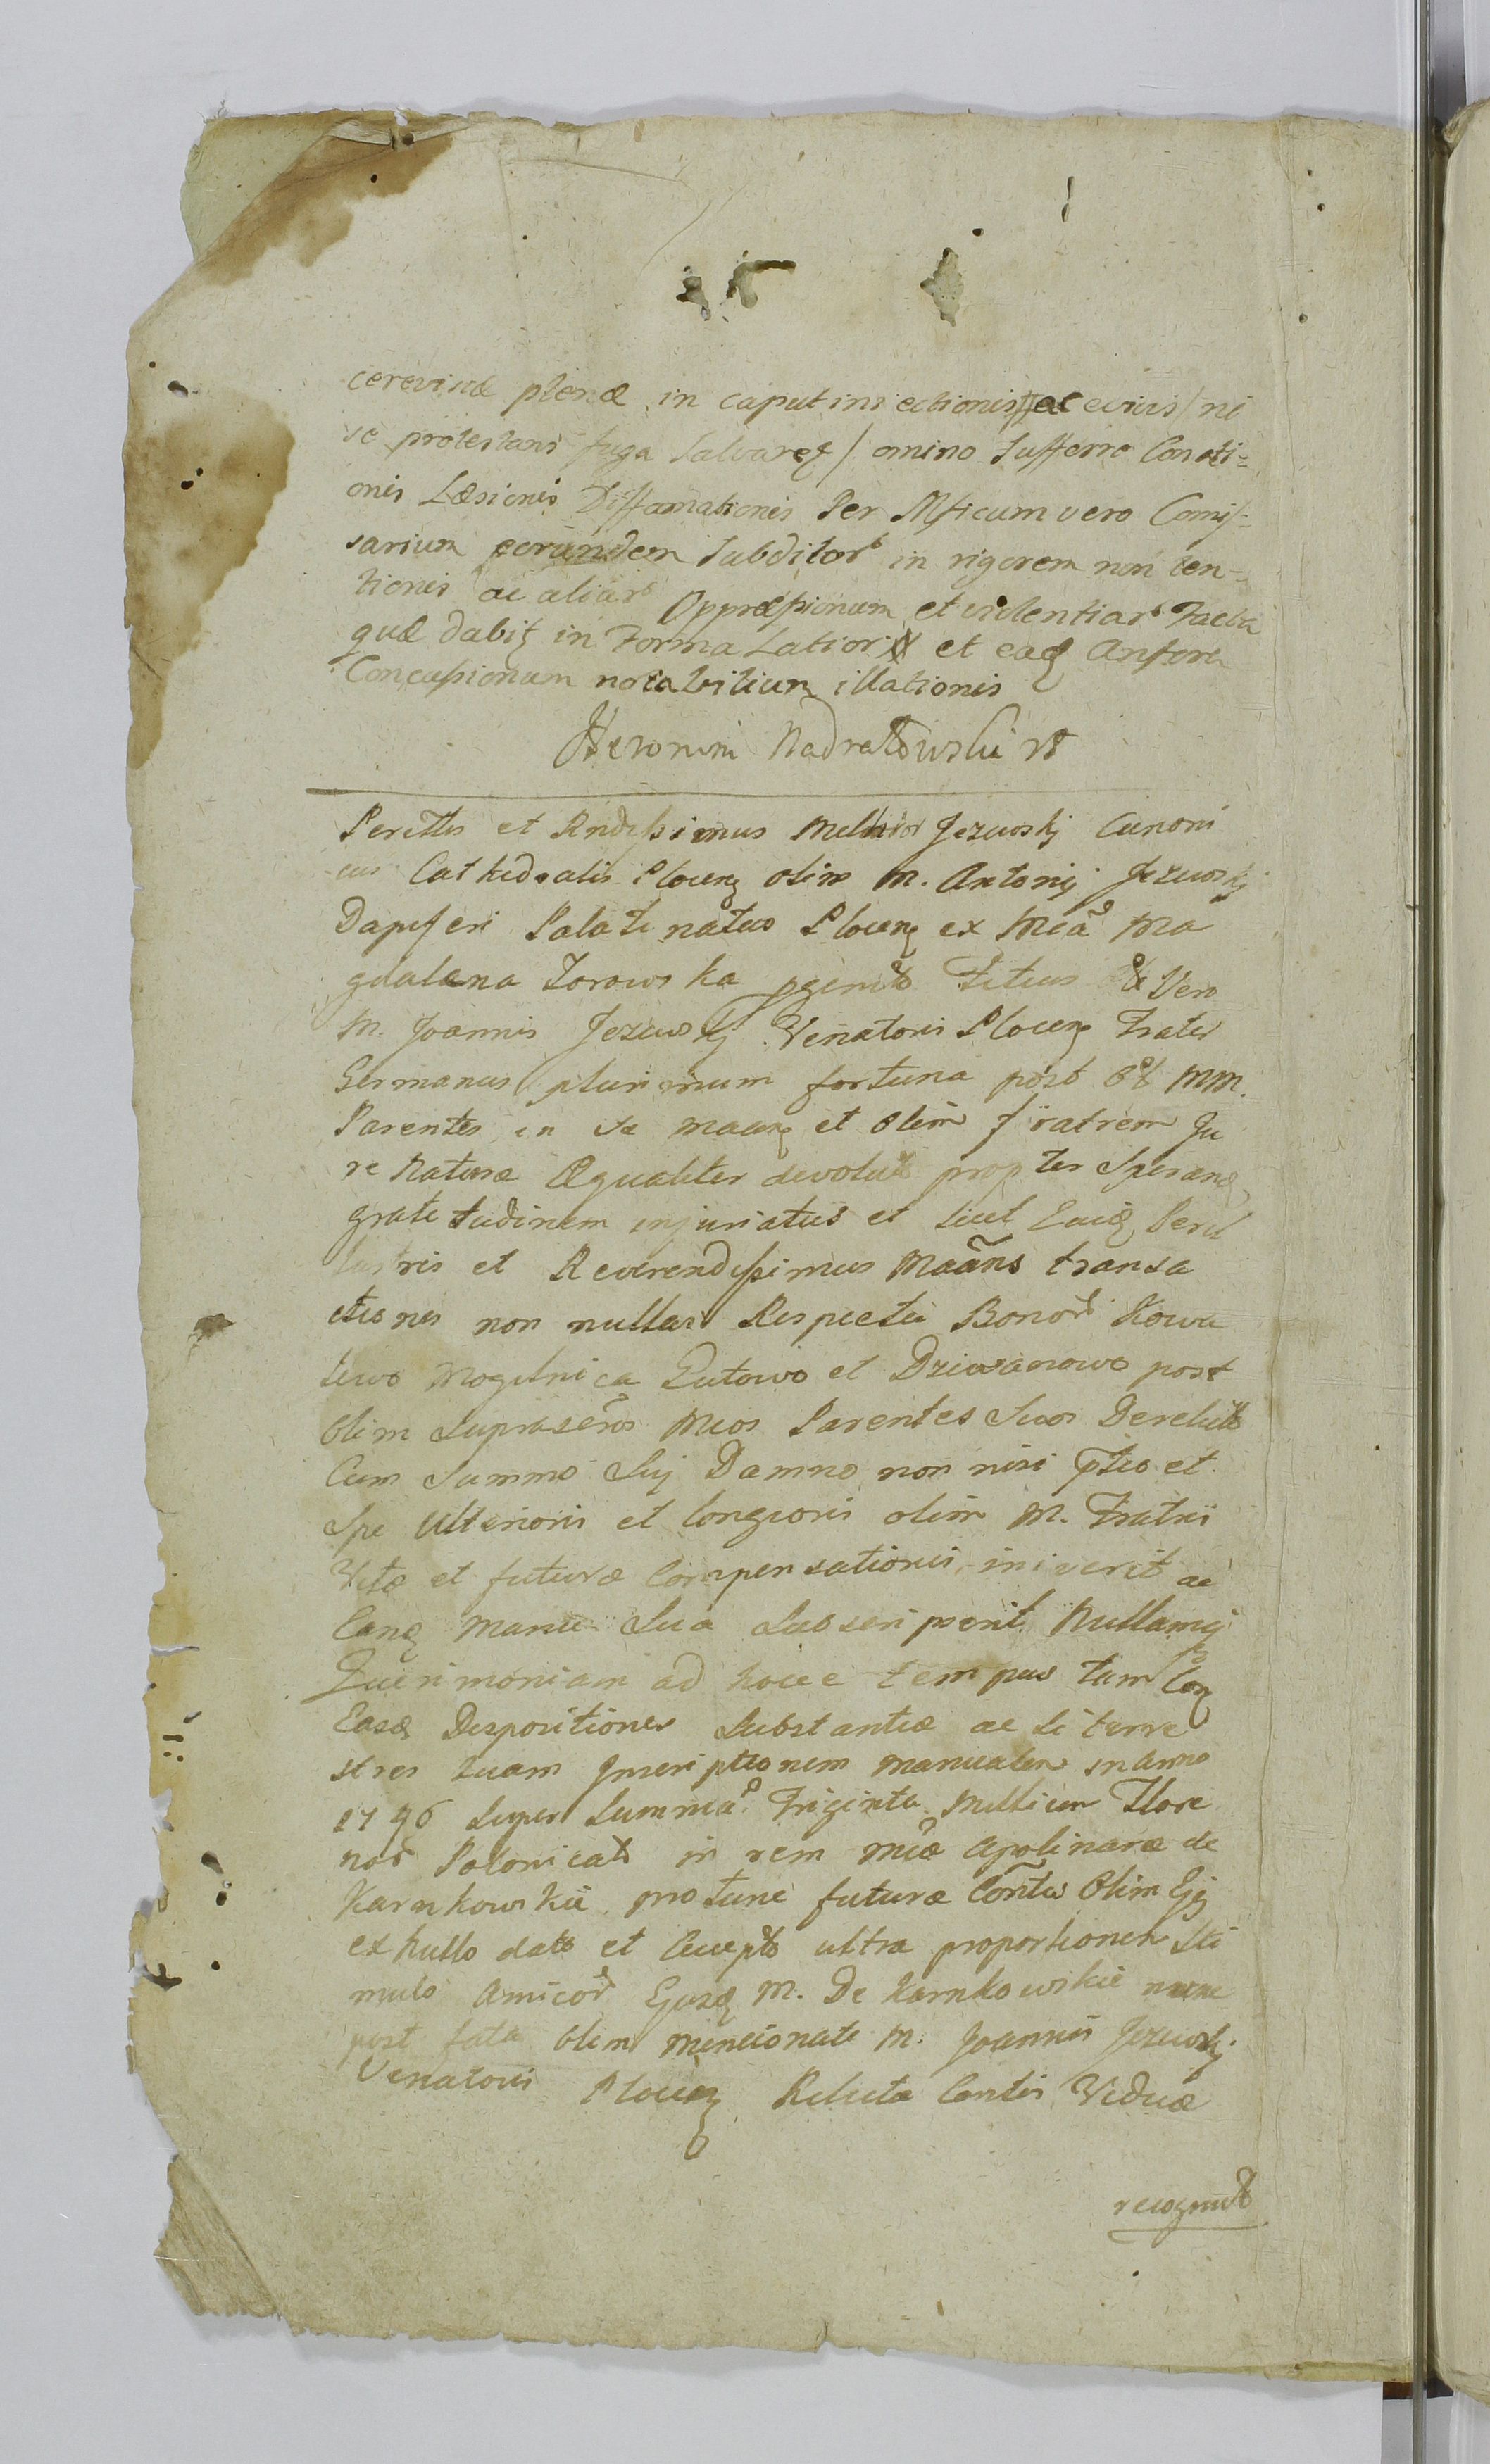 cerevisiæ plenæ in caput iniectionis ac evius / ni
se protestans fuga salvareꝫ / omino sufferre Conati=
onis Læsionis Diffamationis Per Mficum vero Comiſ=
sarium eorundem Subditorꝭ in rigorem non ten=
tionis ac aliarꝭ Oppræſsionum et violentiarꝭ Facta
quæ dabiꝫ in Forma Latiori et eaqꝫ Ansora
Concuſsionum notabilium illationis
Heronim Nadratowski
Perillis et Rndiſsimus Melhior Jezuoskj Canoni
cus Cathedralis Plocenꝫ olim M. Antonij Jezuoskj
Dapiferi Palatinatus Plocenꝫ ex Mcã Ma
gdalena Zorowska pgenitꝰ Filius Vero
M. Joannis Jezuoskj Venatoris Plocenꝫ Frater
Germanus plurimum fortuna post MM.
Parentes in se maanꝫ et olim fratrem Ju
re Naturæ Æqualiter devolut propter Speranꝫ
gratitudinem injuriatus et licet Eaidꝫ Peril
lustris et Reverendiſsimus Maãns transa
ctiones non nullas Respectu Bonorꝭ Kowa
lewo Mogilnica Gutowo et Dziewanowo post
olim suprascros Mcos Parentes Suos Derelict
Cum Summo Suj Damno non nisi ptio et
Spe Ulterioris et longioris olim M. Fratris
Vitæ et futuræ Compensationis iniverit ac
Eanꝫ Manu Sua Subscripserit Nullamqꝫ
Querimoniam ad hocce tempus tam Con
Easdꝫ Dispositiones Substantiæ ac si terre
stres quam Inscriptionem manualem in anno
1796 super Summã Triginta Millium Flore
norꝭ Polonicalꝭ in rem Mcæ Apolinaræ de
Karnkowskie pro tunc futuræ Cõrtis Olim Ejꝫ
ex nullo dato et Accepto ultra proportionem Sti
mulo Amicorꝭ Ejusdꝫ M. De Karnkowskie nunc
post fata olim mencionati M. Joannis Jezuoskj
Venatoris Plocenꝫ Relicta Contis Viduæ
recognit